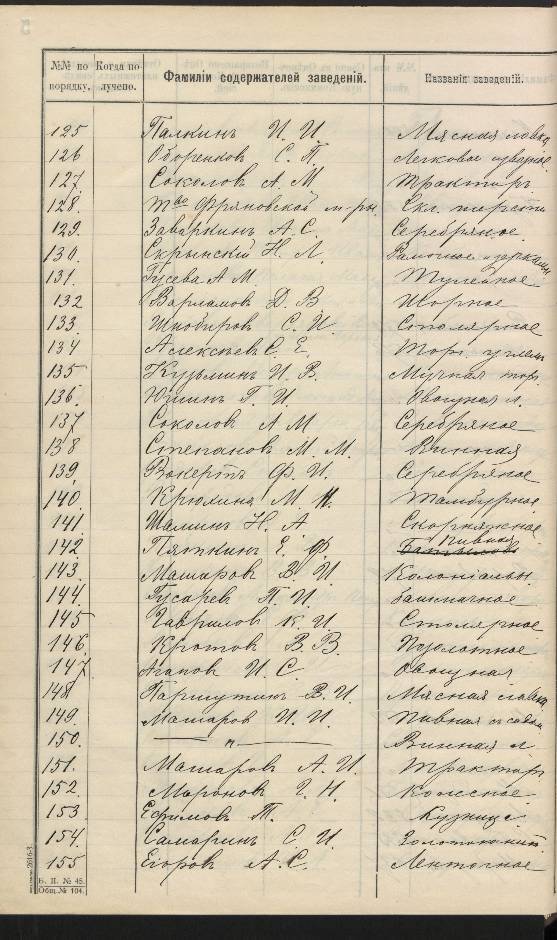 №№ по порядку. Когда получено. Фамиліи содержателей заведеній. Названія заведеній.
125 Палкинъ И. И. Мясная лавка
126 Оборенковъ С. П. Легковое извозное
127. Соколовъ А. М. Трактиръ
128. Тво Фряновской м-ры. Скл. шерсти
129. Заваркинъ А. С. Серебряное
130. Скрынскій Н. Л. Рамочное и зеркальн.
131. Гусева А. М.
132 Варламовъ Д. В.
133. С. И. Столярное
134 Алексѣевъ С. Е. Торг. углемъ
135 Кузьминъ И. В. Мучная торг.
136. Юшинъ Г. И. Овощная л.
137 Соколовъ А М Серебряное
138 Степановъ М. М. Винная
139. Векертъ Ф. И. Серебряное
140. Крюкина М. И. Тамбурное
141 Шалинъ Н. А Скорняжное
142 Пяткинъ Е. Ф. Пивная
143. Машаровъ В. И. Колоніальн.
144. Гусаревъ П. И. Башмачное
145 Гавриловъ К. И Столярное
146. Кротовъ В. В. Позолотное
147 Агаповъ И. С. Овощная
148 Паршутинъ В. И. Мясная лавка
149. Машаровъ И. И. Пивная
150. — " — Винная л.
151. Машаровъ А. И. Трактиръ
152. Мароновъ Г. Н.
153 Ефимовъ Т. Кузница
154. Самаринъ С. И.
155 Егоровъ А. С. Ленточное
Б. П. № 45.
Общ. № 104.